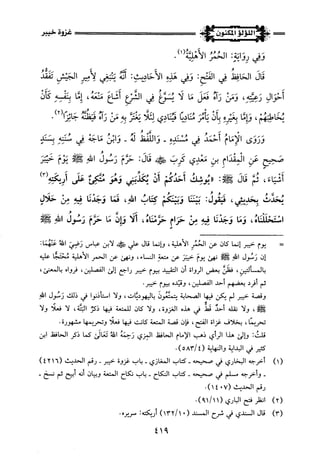 اللؤلؤ المكنون
غزوة خيبر
وَفِي رِوَايَةٍ: الْحُمُرُ الْأَهْلِيَّةُ(١).
قَالَ الْحَافِظُ فِي الْفَتْحِ: وَفِي هَذِهِ الْأَحَادِيثِ: أَنَّهُ يَنْبَغِي لِأَمِيرِ الْجَيْشِ تَفَقُّدُ
أَحْوَالِ رَعِيَّتِهِ، وَمَنْ رَآهُ فَعَلَ مَا لَا يَسُوغُ فِي الشَّرْعِ أَشَاعَ مَنْعَهُ، إِمَّا بِنَفْسِهِ كَأَنْ
يُخَاطِبَهُمْ، وَإِمَّا بِغَيْرِهِ بِأَنْ يَأْمُرَ مُنَادِيًا فَيُنَادِي لِئَلَّا يَغْتَرَّ بِهِ مَنْ رَآهُ فَيَظُنَّهُ جَائِزًا(٢).
وَرَوَى الْإِمَامُ أَحْمَدُ فِي مُسْنَدِهِ - وَاللَّفْظُ لَهُ - وَابْنُ مَاجَه فِي سُنَنِهِ بِسَنَدٍ
صَحِيحٍ عَنِ الْمِقْدَامِ بنِ مَعْدِي كَرِبَ ﷺ قَالَ: حَرَّمَ رَسُولُ اللهِ ﷺ يَوْمَ خَيْبَرَ
أَشْيَاءَ، ثُمَّ قَالَ ﷺ: «يُوشِكُ أَحَدُكُمْ أَنْ يُكَذِّبَنِي وَهُوَ مُتَّكِئٌ عَلَى أَرِيكَتِهِ(٣)
يُحَدَّثُ بِحَدِيثِي، فَيَقُولُ: بَيْنَنَا وَبَيْنَكُمْ كِتَابُ اللهِ، فَمَا وَجَدْنَا فِيهِ مِنْ حَلَالٍ
اسْتَحْلَلْنَاهُ، وَمَا وَجَدْنَا فِيهِ مِنْ حَرَامٍ حَرَّمْنَاهُ، أَلَا وَإِنَّ مَا حَرَّمَ رَسُولُ اللهِ ﷺ
= يوم خيبر إنما كان عن الحُمر الأهلية، وإنما قال علي ﷺ لابن عباس رَضِيَ اللهُ عَنْهُمَا:
إن رسول الله ﷺ نهى يوم خيبر عن متعة النساء، ونهى عن الحمر الأهلية مُحتجًا عليه
بالمسألتين، فظن بعض الرواة أن التقييد بيوم خيبر راجع إلى الفصلين، فرواه بالمعنى،
ثم أفرد بعضهم أحد الفصلين، وقيَّده بيوم خيبر.
وقصة خيبر لم يكن فيها الصحابة يتمتَّعون باليهوديَّات، ولا استأذنوا في ذلك رسول الله
ﷺ، ولا نقله أحدٌ قط في هذه الغزوة، ولا كان للمتعة فيها ذكرٌ البتَّة، لا فعلًا ولا
تحريمًا، بخلاف غزاة الفتح، فإن قصة المتعة كانت فيها فعلًا وتحريمها مشهورة.
قلتُ: وإلى هذا الرأي ذهب الإمام الحافظ المزي رَحِمَهُ اللهُ تَعَالَى كما ذكر الحافظ ابن
كثير في البداية والنهاية (٥٨٣/٤).
(١) أخرجه البخاري في صحيحه - كتاب المغازي - باب غزوة خيبر - رقم الحديث (٤٢١٦)
- وأخرجه مسلم في صحيحه - كتاب النكاح - باب نكاح المتعة وبيان أنه أبيح ثم نسخ -
رقم الحديث (١٤٠٧).
(٢) انظر فتح الباري (٩١/١١).
(٣) قال السندي في شرح المسند (١٣٢/١٠) أريكته: سريره.
٤١٩